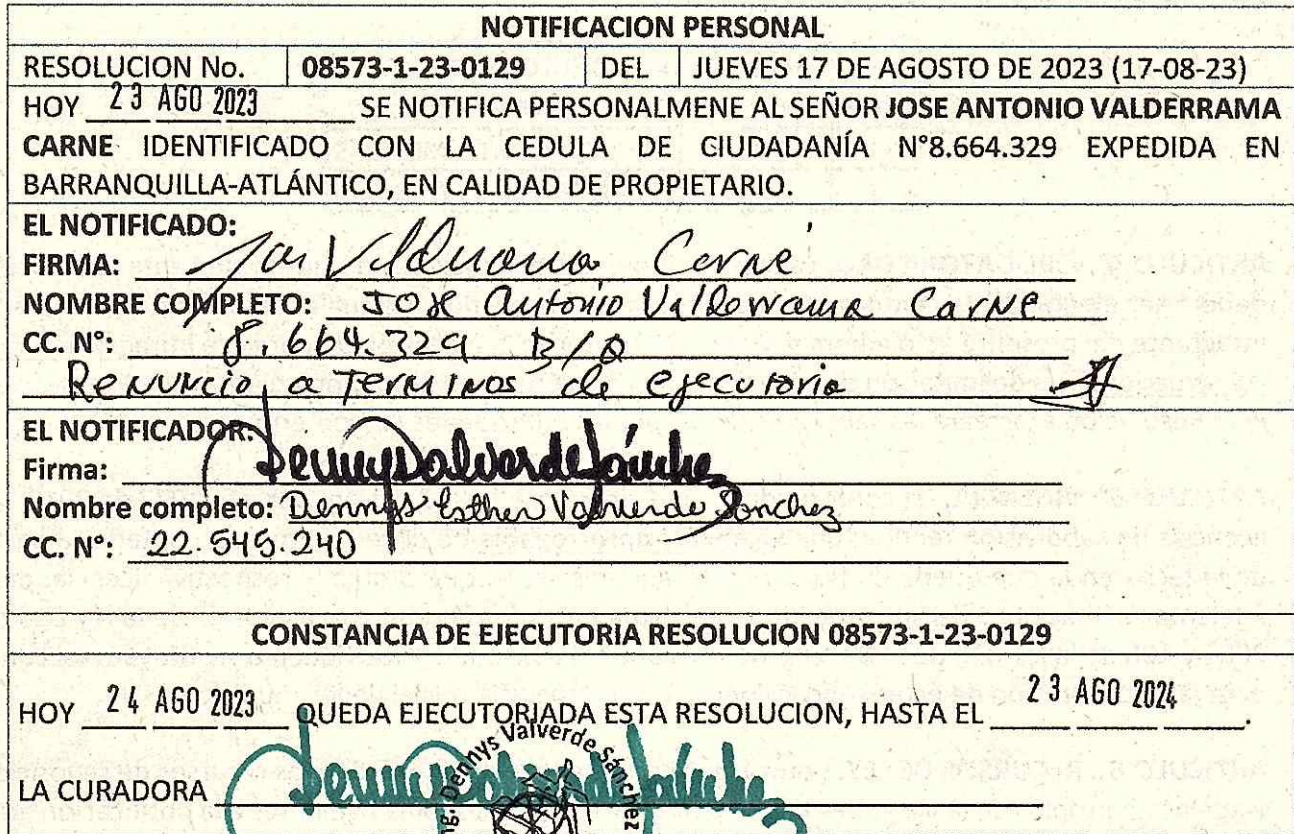 NOTIFICACION PERSONAL
RESOLUCION No. 08573-1-23-0129 DEL JUEVES 17 DE AGOSTO DE 2023 (17-08-23)
HOY 23 AGO 2023 SE NOTIFICA PERSONALMENE AL SEÑOR JOSE ANTONIO VALDERRAMA
CARNE IDENTIFICADO CON LA CEDULA DE CIUDADANÍA N°8.664.329 EXPEDIDA EN
BARRANQUILLA-ATLÁNTICO, EN CALIDAD DE PROPIETARIO.
EL NOTIFICADO:
FIRMA: Carne
NOMBRE COMPLETO: JOSE Antonio Valderrama Carne
CC. N°: 8.664.329 B/Q
Renuncio a Terminos de ejecutoria
EL NOTIFICADOR:
Firma: Dennys Valverde Sánchez
Nombre completo: Dennys Esther Valverde Sanchez
CC. N°: 22.545.240
CONSTANCIA DE EJECUTORIA RESOLUCION 08573-1-23-0129
HOY 24 AGO 2023 QUEDA EJECUTORIADA ESTA RESOLUCION, HASTA EL 23 AGO 2024.
LA CURADORA Dennys Valverde Sánchez
Ing. Dennys Valverde Sánchez